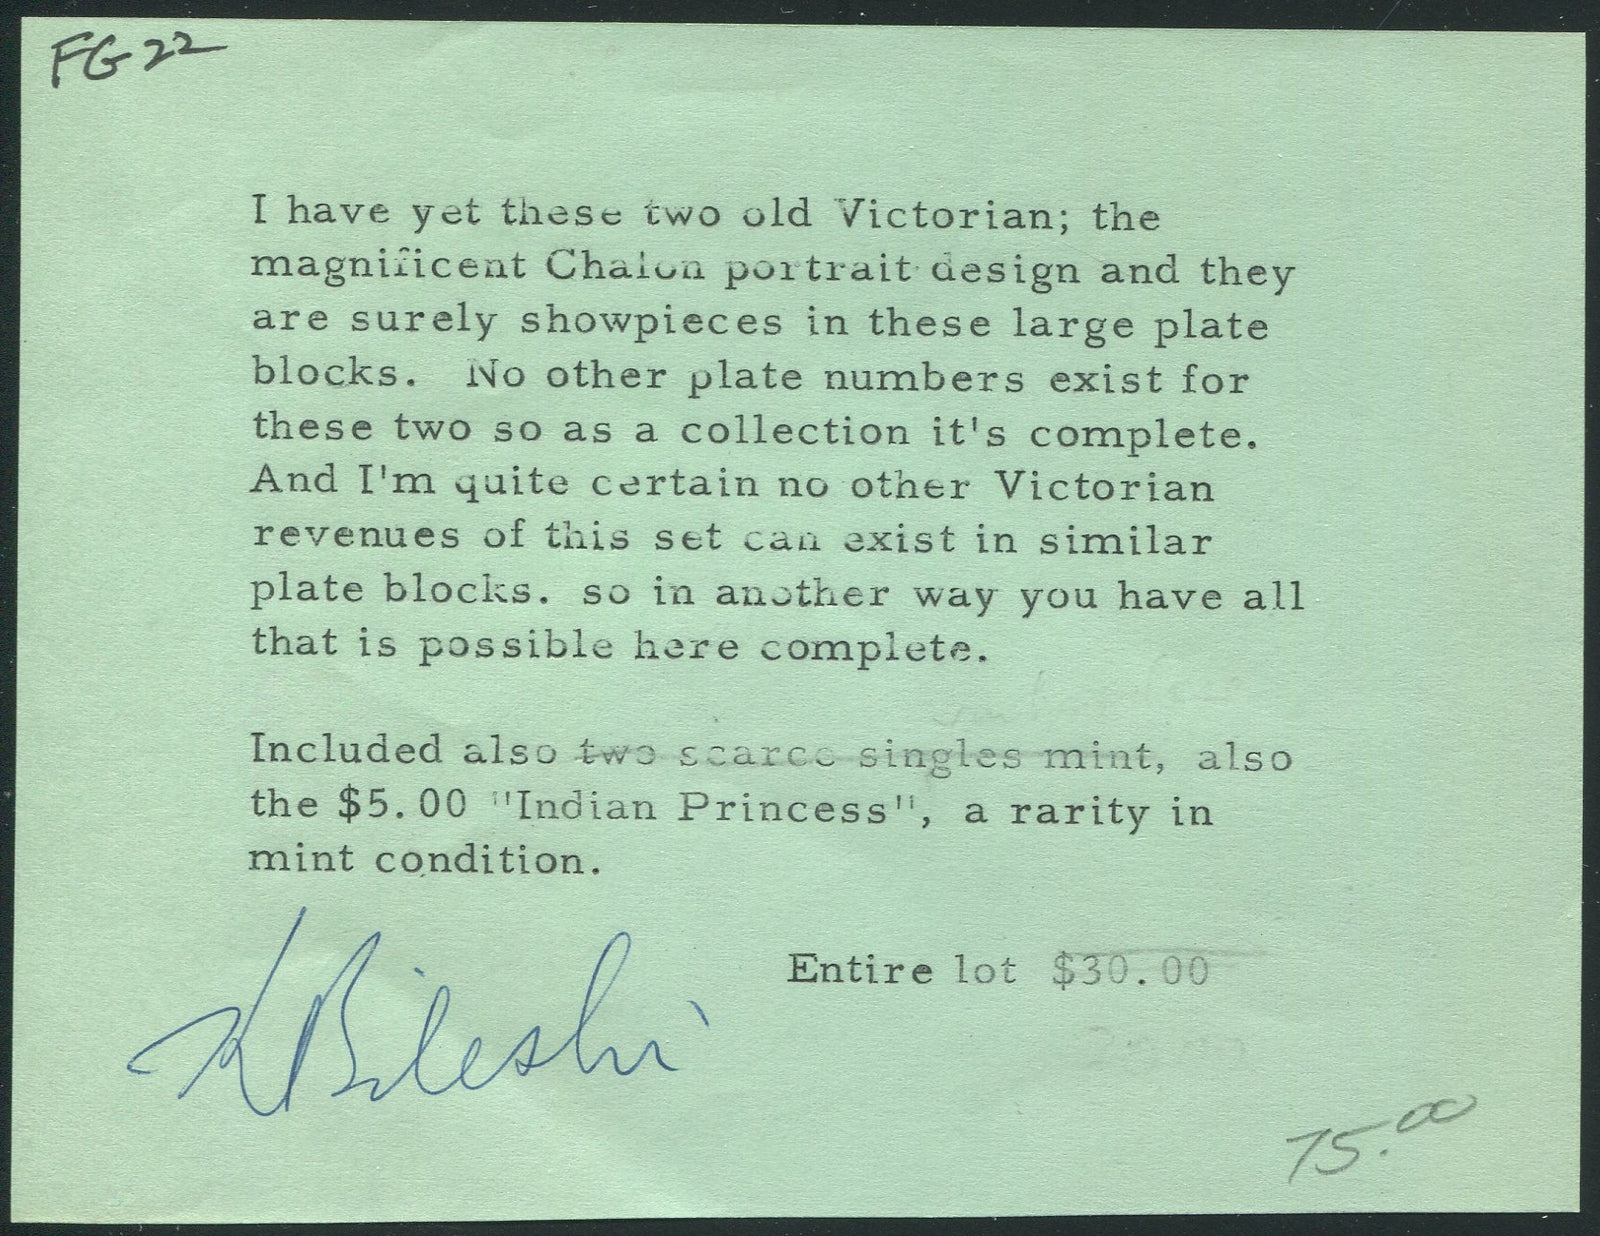 FG22
I have yet these two old Victorian; the
magnificent Chalon portrait design and they
are surely showpieces in these large plate
blocks. No other plate numbers exist for
these two so as a collection it's complete.
And I'm quite certain no other Victorian
revenues of this set can exist in similar
plate blocks. so in another way you have all
that is possible here complete.
Included also two scarce singles mint, also
the $5.00 "Indian Princess", a rarity in
mint condition.
Entire lot $30.00
K Bileski
75.00